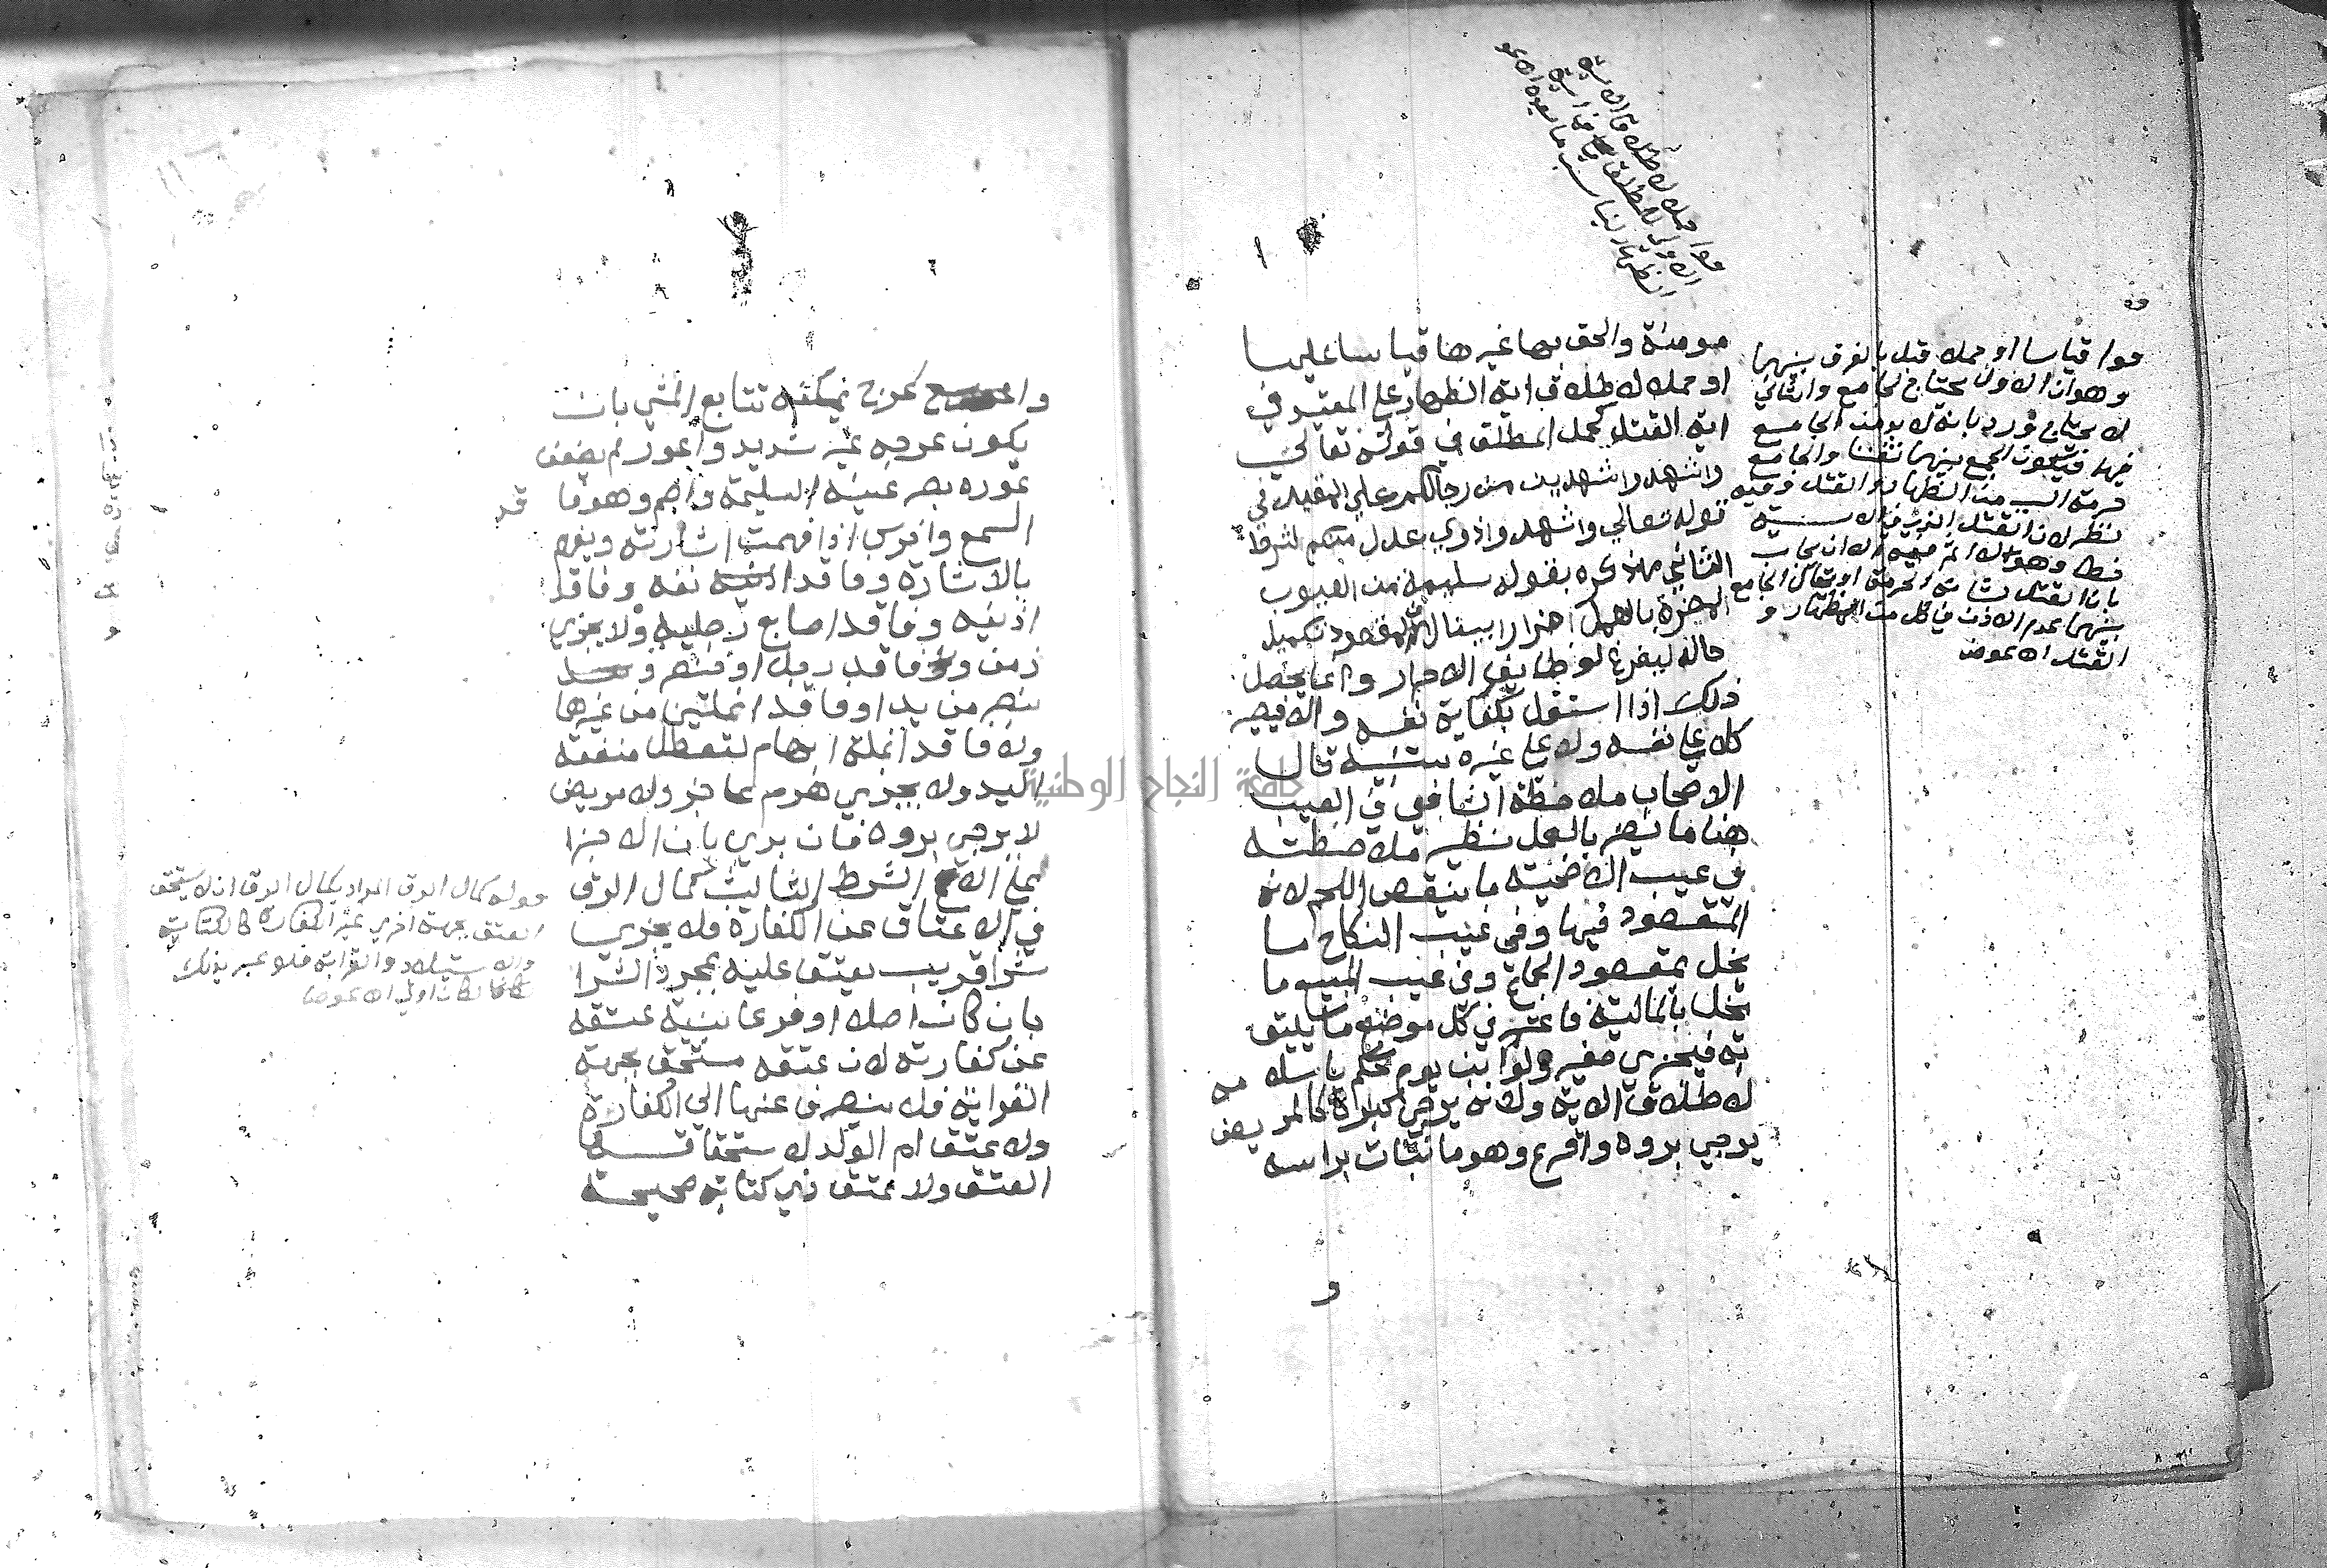 مومنة والحق بها غيرها قياسا عليها
او حملا لاطلاق اية الظهار علي المقيد في
اية القتل كحمل المطلق في قوله تعالي
واشهدوا شهدين من رجالكم علي المقيد في
قوله تعالي واشهدوا ذوي عدل منكم الشرط
الثاني ما ذكره بقوله سليمة من العيوب
المضرة بالعمل اضرارا بينا لان المقصود تكميل
حاله ليفرغ لوظايف الاحرار وانما يحصل
ذلك اذا استقل بكفاية نفسه والا فيصير
كلا علي نفسه ولا علي غيره بنية قال
الاصحاب ملاحظة الشافعي في العيب
هنا ما يضر بالعمل نظير ملاحظته
في عيب الاضحية ما ينقص اللحم لانه
المقصود فيها وفي عيب النكاح ما
يخل بمقصود الجماع وفي عيب المبيع ما
يخل بالمالية فاعتبر في كل موضع ما يليق
به فيجزي صغير ولو ابن يوم حكم باسلامه
لاطلاق الاية ولانه يرجي كبره كالمريض
يرجي بروه واقرع وهو ما نبات براسه
و
قوله قياسا او حملا قيل بالفرق بينهما
وهو ان الاول يحتاج لجامع والثاني
لا يحتاج ورد بانه لا بد من الجامع
فيهما فيكون الجمع بينهما تفننا والجامع
حرمة السبب من الظهار والقتل وفيه
نظر لان القتل الذي في الاية
خطا وهو لا اثم فيه الا ان يجاب
بان القتل شانه الحرمة او يقال الجامع
بينهما عدم الاذن في كل من الظهار و
القتل اه عوض
واعرج يمكنه تتابع المشي بان
يكون عرجه غير شديد واعور لم يضعف
عوره بصر عينه السليمة واصم وهو فاقد
السمع واخرس اذا فهمت اشارته ويفهم
بالاشارة وفاقد انفه وفاقد
اذنيه وفاقد اصابع رجليه ولا يجزي
زمن ولا فاقد رجل او خنصر و
بنصر من يد او فاقد انملتين من غيرها
ولا فاقد انملة ابهام لتعطل منفعة
اليد ولا يجزي هرم عاجز ولا مريض
لا يرجي بروه فان بري بان الاجزا
علي الاصح الشرط الثالث كمال الرق
في الاعتاق عن الكفارة فلا يجزي
شرا قريب يعتق عليه بمجرد الشرا
بان كان اصلا او فرعا بنية عتقه
عن كفارته لان عتقه مستحق بجهة
القرابة فلا ينصرف عنها الي الكفارة
ولا عتق ام الولد لاستحقاقها
العتق ولا عتق ذي كتابة صحيحة
قوله كمال الرق المراد بكمال الرق ان لا يستحق
العتق بجهة اخري غير الكفارة كالكتابة
والاستيلاد والقرابة فلو عبر بذلك
لكان اولي اه عوض
جامعة النجاح الوطنية